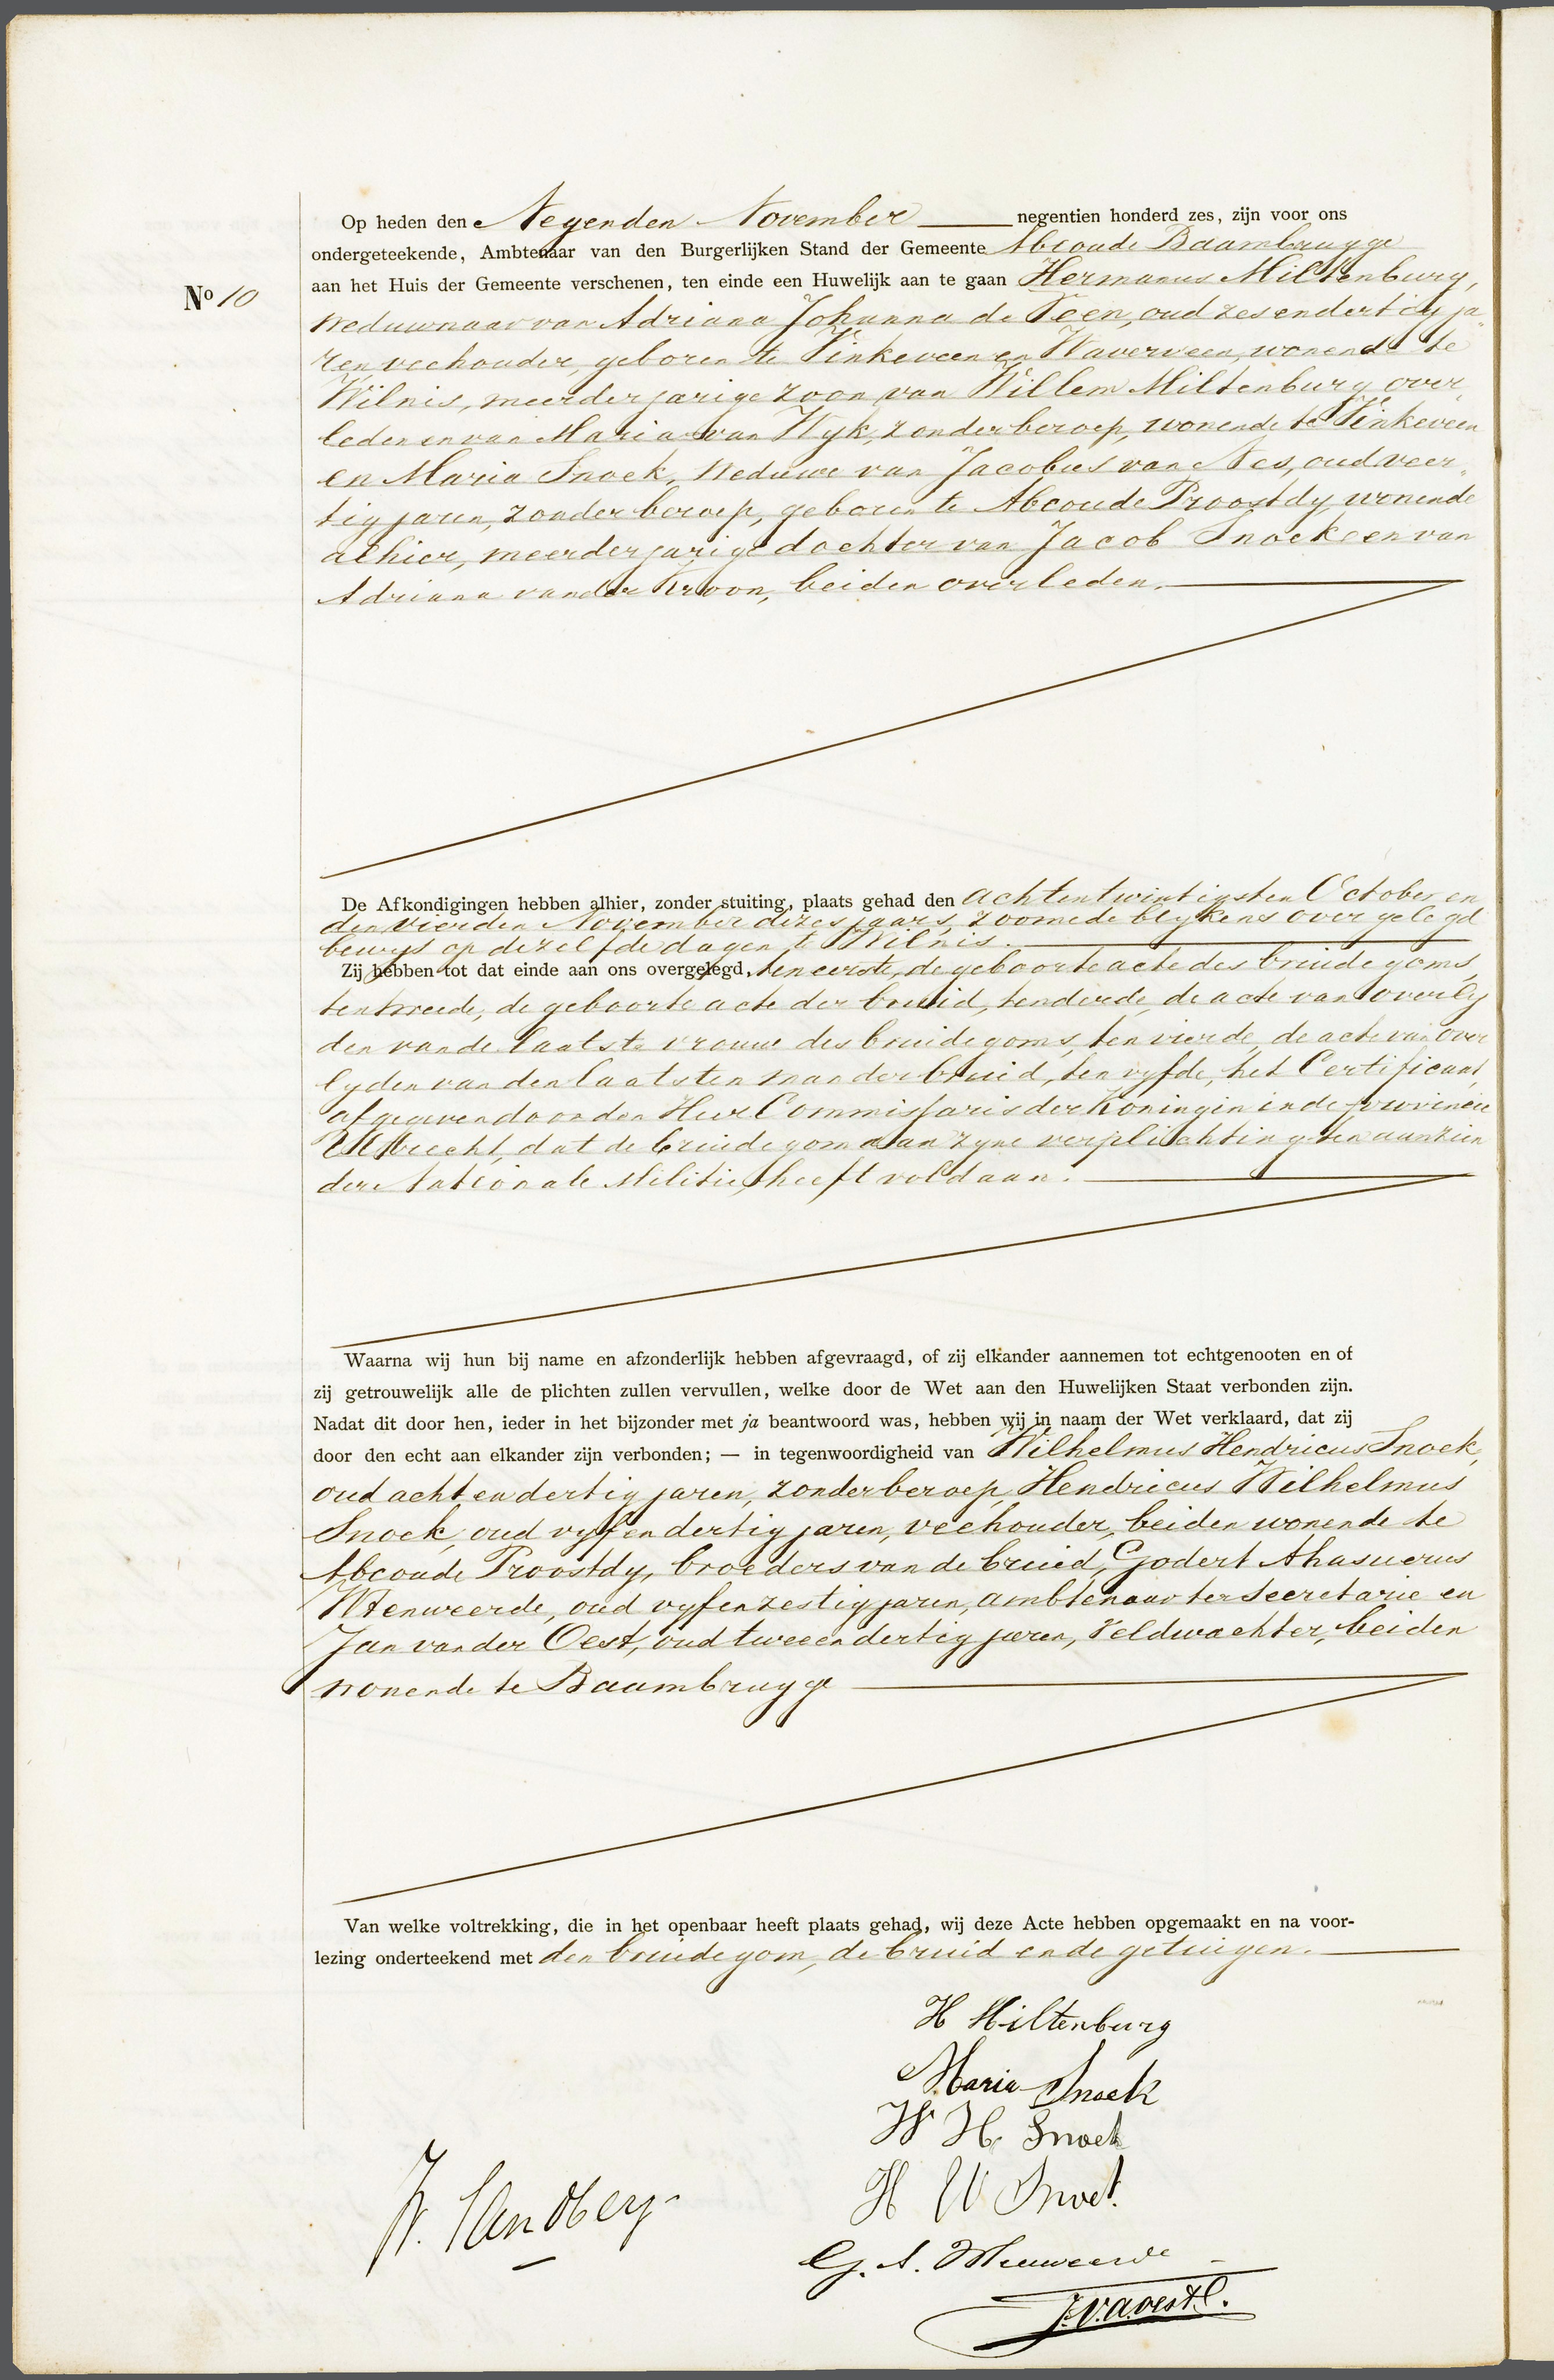 Op heden den Negenden November negentien honderd zes, zijn voor ons
ondergeteekende, Ambtenaar van den Burgerlijken Stand der Gemeente Abcoude Baambrugge
aan het Huis der Gemeente verschenen, ten einde een Huwelijk aan te gaan Hermanus Miltenburg,
No 10
weduwnaar van Adriana Johanna de Veen, oud zesendertig ja
ren veehouder, geboren te Vinkeveen en Waverveen, wonende te
Wilnis, meerderjarige zoon van Willem Miltenburg, over
leden en van Maria van Wyk, zonder beroep, wonende te Vinkeveen
en Maria Snoek, weduwe van Jacobus van Nes, oud veer
tig jaren, zonder beroep, geboren te Abcoude Proostdy, wonende
alhier, meerderjarige dochter van Jacob Snoek en van
Adriana van der Kroon, beiden overleden.
De Afkondigingen hebben alhier, zonder stuiting, plaats gehad den achtentwintigsten October en
den vierden November dezes jaars, zoomede blykens overgelegd
bewys op dezelfde dagen te Wilnis.
Zij hebben tot dat einde aan ons overgelegd, ten eerste, de geboorteacte des bruidegoms,
ten tweede, de geboorte acte der bruid, ten derde, de acte van overly
den van de laatste vrouw des bruidegoms, ten vierde, de acte van over
lyden van den laatsten man der bruid, ten vyfde, het Certificaat,
afgegeven door den Heer Commissaris der Koningin in de provincie
Utrecht, dat de bruidegom aan zyne verplichting ten aanzien
der Nationale Militie, heeft voldaan.
Waarna wij hun bij name en afzonderlijk hebben afgevraagd, of zij elkander aannemen tot echtgenooten en of
zij getrouwelijk alle de plichten zullen vervullen, welke door de Wet aan den Huwelijken Staat verbonden zijn.
Nadat dit door hen, ieder in het bijzonder met ja beantwoord was, hebben wij in naam der Wet verklaard, dat zij
door den echt aan elkander zijn verbonden; — in tegenwoordigheid van Wilhelmus Hendricus Snoek,
oud achtendertig jaren, zonder beroep, Hendricus Wilhelmus
Snoek, oud vyfendertig jaren, veehouder, beiden wonende te
Abcoude Proostdy, broeders van de bruid, Godert Ahasuerus
Wtenweerde, oud vyfenzestig jaren, ambtenaar ter secretarie en
Jan van der Oest, oud tweeendertig jaren, veldwachter, beiden
wonende te Baambrugge
Van welke voltrekking, die in het openbaar heeft plaats gehad, wij deze Acte hebben opgemaakt en na voor-
lezing onderteekend met den bruidegom, de bruid en de getuigen.
H Miltenburg
Maria Snoek
W H Snoek
H W Snoek
Sandberg
G. A. Wtenweerde